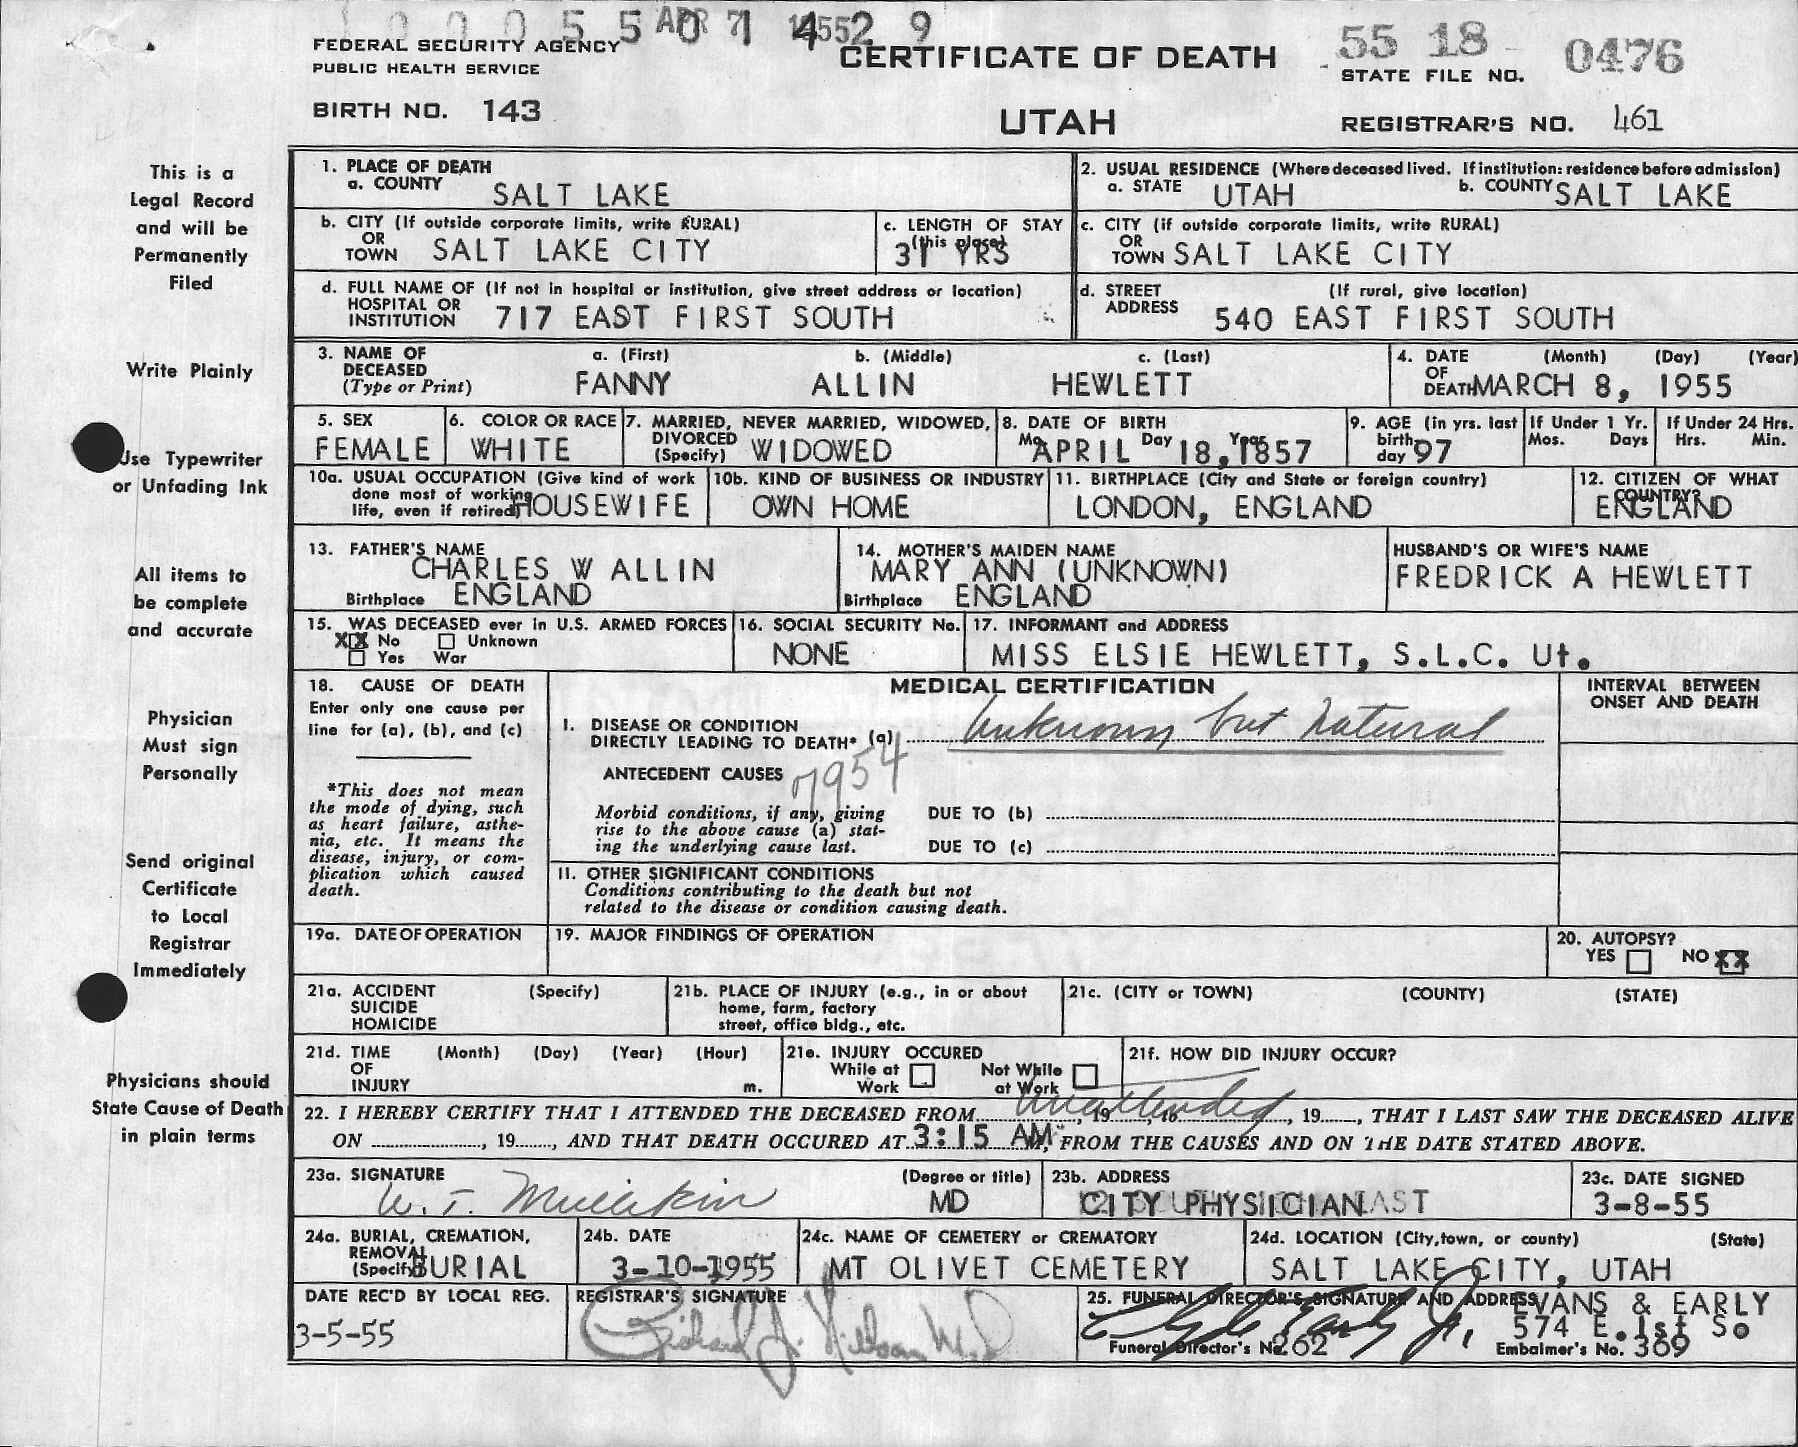 APR 7 1955
55 18 0476
FEDERAL SECURITY AGENCY
PUBLIC HEALTH SERVICE
CERTIFICATE OF DEATH
STATE FILE NO.
BIRTH NO. 143
UTAH
REGISTRAR'S NO. 461
This is a
Legal Record
and will be
Permanently
Filed
Write Plainly
Use Typewriter
or Unfading Ink
All items to
be complete
and accurate
Physician
Must sign
Personally
Send original
Certificate
to Local
Registrar
Immediately
Physicians should
State Cause of Death
in plain terms
1. PLACE OF DEATH
a. COUNTY SALT LAKE
2. USUAL RESIDENCE (Where deceased lived. If institution: residence before admission)
a. STATE UTAH b. COUNTY SALT LAKE
b. CITY (If outside corporate limits, write RURAL)
OR
TOWN SALT LAKE CITY
c. LENGTH OF STAY
(this place)
31 YRS
c. CITY (if outside corporate limits, write RURAL)
OR
TOWN SALT LAKE CITY
d. FULL NAME OF (If not in hospital or institution, give street address or location)
HOSPITAL OR
INSTITUTION 717 EAST FIRST SOUTH
d. STREET (If rural, give location)
ADDRESS 540 EAST FIRST SOUTH
3. NAME OF a. (First) b. (Middle) c. (Last)
DECEASED
(Type or Print) FANNY ALLIN HEWLETT
4. DATE (Month) (Day) (Year)
OF
DEATH MARCH 8, 1955
5. SEX
FEMALE
6. COLOR OR RACE
WHITE
7. MARRIED, NEVER MARRIED, WIDOWED,
DIVORCED
(Specify) WIDOWED
8. DATE OF BIRTH
Mo. Day Year
APRIL 18, 1857
9. AGE (in yrs. last
birth-
day 97
If Under 1 Yr.
Mos. Days
If Under 24 Hrs.
Hrs. Min.
10a. USUAL OCCUPATION (Give kind of work
done most of working
life, even if retired) HOUSEWIFE
10b. KIND OF BUSINESS OR INDUSTRY
OWN HOME
11. BIRTHPLACE (City and State or foreign country)
LONDON, ENGLAND
12. CITIZEN OF WHAT
COUNTRY?
ENGLAND
13. FATHER'S NAME
CHARLES W ALLIN
Birthplace ENGLAND
14. MOTHER'S MAIDEN NAME
MARY ANN (UNKNOWN)
Birthplace ENGLAND
HUSBAND'S OR WIFE'S NAME
FREDRICK A HEWLETT
15. WAS DECEASED ever in U.S. ARMED FORCES
XX No Unknown
Yes War
16. SOCIAL SECURITY No.
NONE
17. INFORMANT and ADDRESS
MISS ELSIE HEWLETT, S.L.C. Ut.
18. CAUSE OF DEATH
Enter only one cause per
line for (a), (b), and (c)
*This does not mean
the mode of dying, such
as heart failure, asthe-
nia, etc. It means the
disease, injury, or com-
plication which caused
death.
MEDICAL CERTIFICATION
I. DISEASE OR CONDITION
DIRECTLY LEADING TO DEATH* (a) Unknown but natural
ANTECEDENT CAUSES 7954
Morbid conditions, if any, giving
rise to the above cause (a) stat-
ing the underlying cause last.
DUE TO (b)
DUE TO (c)
II. OTHER SIGNIFICANT CONDITIONS
Conditions contributing to the death but not
related to the disease or condition causing death.
INTERVAL BETWEEN
ONSET AND DEATH
19a. DATE OF OPERATION
19. MAJOR FINDINGS OF OPERATION
20. AUTOPSY?
YES NO XX
21a. ACCIDENT (Specify)
SUICIDE
HOMICIDE
21b. PLACE OF INJURY (e.g., in or about
home, farm, factory
street, office bldg., etc.
21c. (CITY or TOWN) (COUNTY) (STATE)
21d. TIME (Month) (Day) (Year) (Hour)
OF
INJURY m.
21e. INJURY OCCURED
While at Work Not While at Work
21f. HOW DID INJURY OCCUR?
22. I HEREBY CERTIFY THAT I ATTENDED THE DECEASED FROM Unattended, 19, to, 19, THAT I LAST SAW THE DECEASED ALIVE
ON , 19, AND THAT DEATH OCCURED AT 3:15 AM M, FROM THE CAUSES AND ON THE DATE STATED ABOVE.
23a. SIGNATURE (Degree or title)
W. T. Mullikin MD
23b. ADDRESS
CITY PHYSICIAN
23c. DATE SIGNED
3-8-55
24a. BURIAL, CREMATION,
REMOVAL
(Specify) BURIAL
24b. DATE
3-10-1955
24c. NAME OF CEMETERY or CREMATORY
MT OLIVET CEMETERY
24d. LOCATION (City, town, or county) (State)
SALT LAKE CITY, UTAH
DATE REC'D BY LOCAL REG.
3-5-55
REGISTRAR'S SIGNATURE
Richard J. Nilson M.D
25. FUNERAL DIRECTOR'S SIGNATURE AND ADDRESS
EVANS & EARLY
574 E. 1st So
Clyde Early Jr.
Funeral Director's No. 262
Embalmer's No. 369